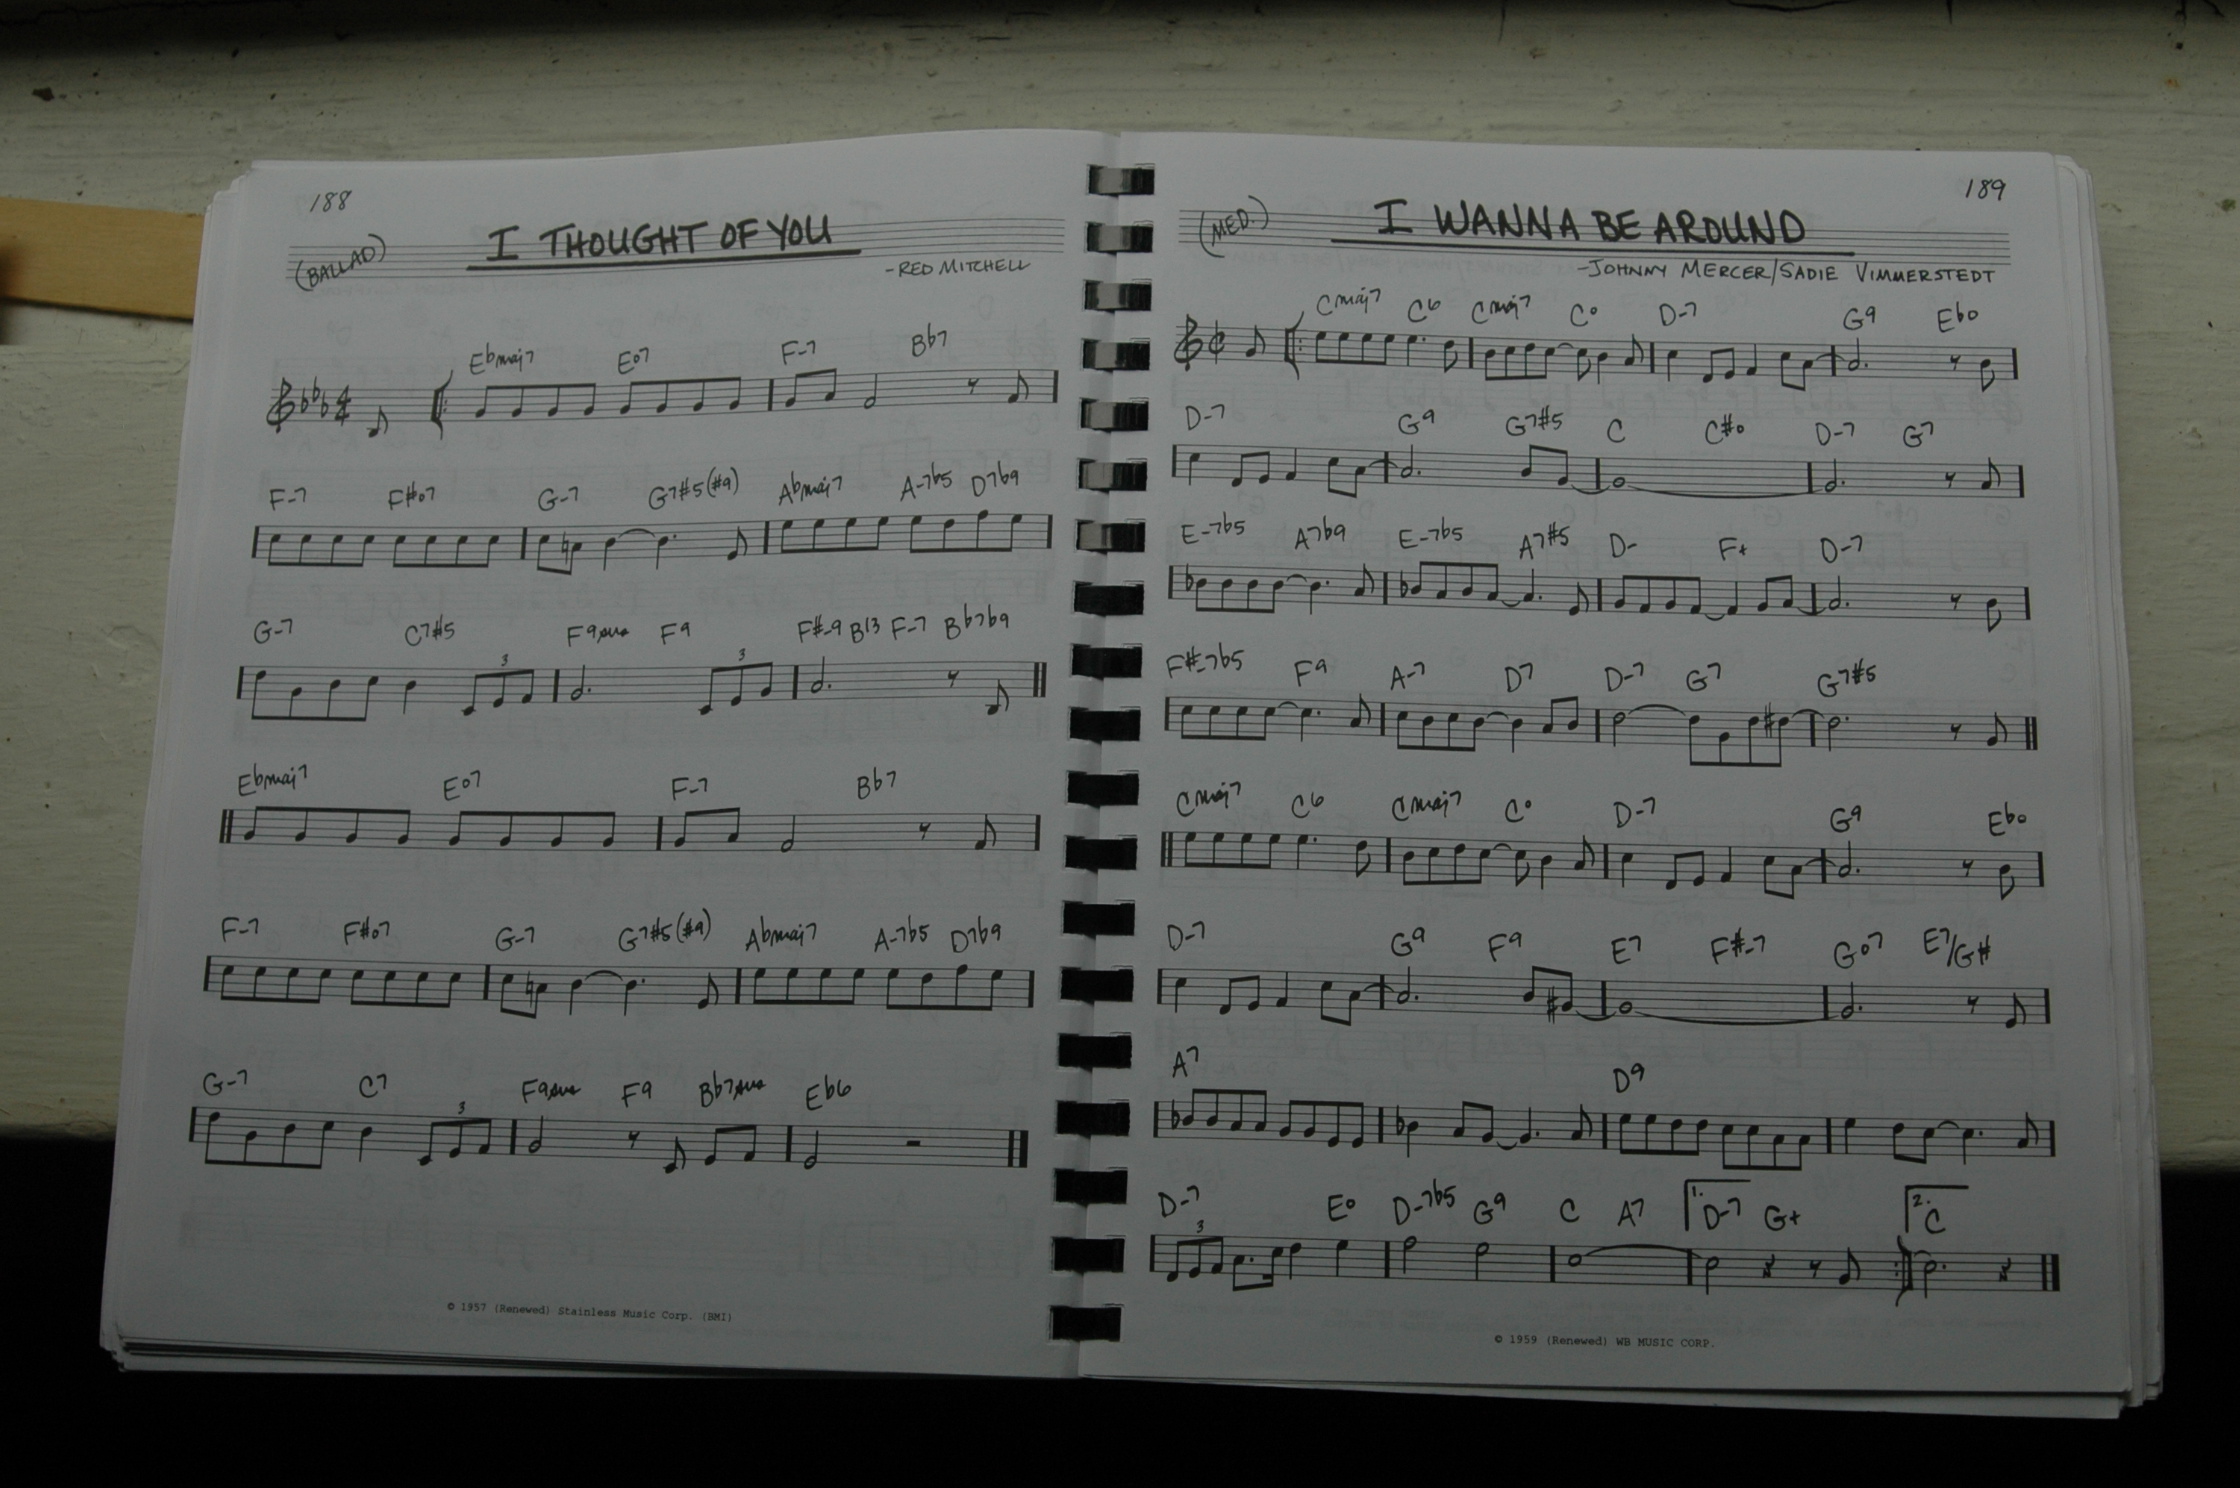 188
I THOUGHT OF YOU
(BALLAD)
-RED MITCHELL
Ebmaj7 Eo7 F-7 Bb7
F-7 F#o7 G-7 G7#5(#9) Abmaj7 A-7b5 D7b9
3 3
G-7 C7#5 F9sus F9 F#-9 B13 F-7 Bb7b9
Ebmaj7 Eo7 F-7 Bb7
F-7 F#o7 G-7 G7#5(#9) Abmaj7 A-7b5 D7b9
3
G-7 C7 F9sus F9 Bb7sus Eb6
© 1957 (Renewed) Stainless Music Corp. (BMI)
189
I WANNA BE AROUND
(MED.)
-JOHNNY MERCER/SADIE VIMMERSTEDT
Cmaj7 C6 Cmaj7 Co D-7 G9 Ebo
D-7 G9 G7#5 C C#o D-7 G7
E-7b5 A7b9 E-7b5 A7#5 D- F+ D-7
F#-7b5 F9 A-7 D7 D-7 G7 G7#5
Cmaj7 C6 Cmaj7 Co D-7 G9 Ebo
D-7 G9 F9 E7 F#-7 Go7 E7/G#
A7 D9
1. 2.
D-7 Eo D-7b5 G9 C A7 D-7 G+ C
3
© 1959 (Renewed) WB MUSIC CORP.